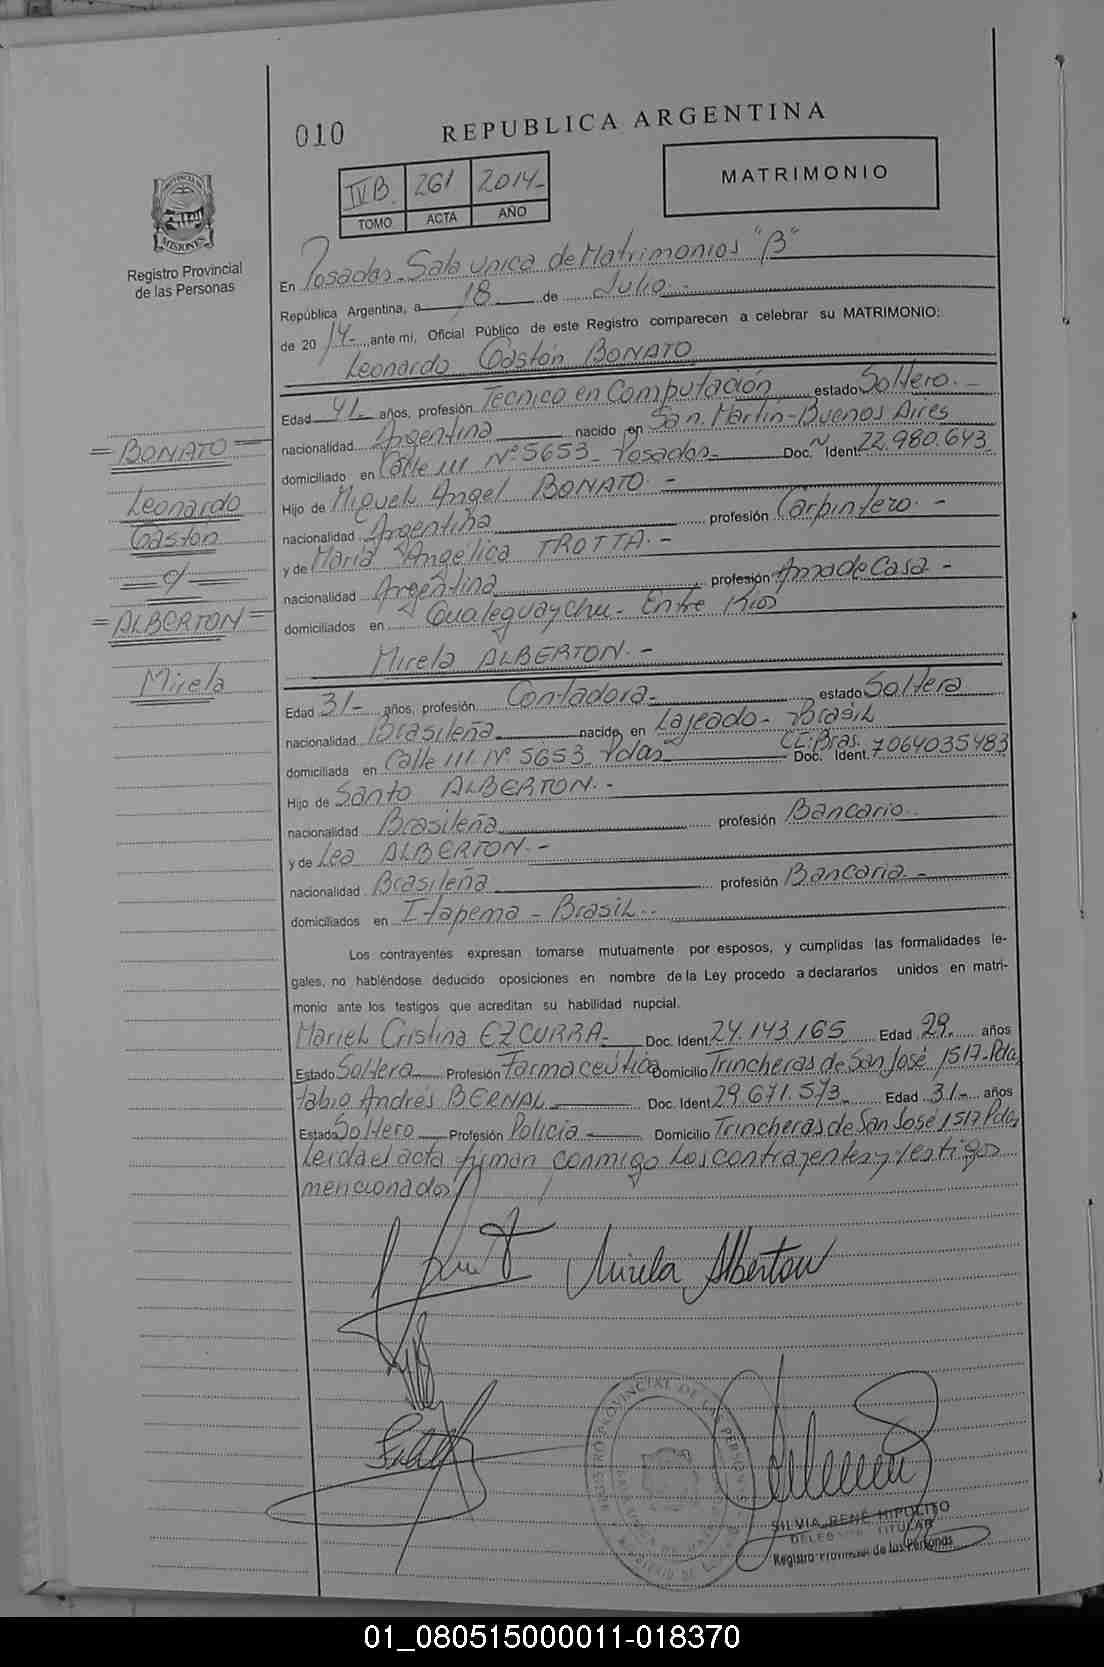 010
REPUBLICA ARGENTINA
IV B. 261 2014-
TOMO ACTA AÑO
MATRIMONIO
PROVINCIA DE
MISIONES
Registro Provincial
de las Personas
En Posadas-Sala unica de Matrimonios "B"
República Argentina, a 18 de Julio.-
de 20 14- ante mi, Oficial Público de este Registro comparecen a celebrar su MATRIMONIO:
Leonardo Gastón BONATO
Edad 41- años, profesión Tecnico en Computación estado Soltero.-
nacionalidad Argentina nacido en San. Martín-Buenos Aires
domiciliado en Calle III Nº 5653- Posadas- Doc. Ident. 22.980.643
Hijo de Miguel Angel BONATO.-
nacionalidad Argentina profesión Carpintero.-
y de María Angélica TROTTA.-
nacionalidad Argentina profesión Ama de Casa-
domiciliados en Gualeguaychu- Entre Rios
Mirela ALBERTON.-
Edad 31- años, profesión Contadora- estado Soltera
nacionalidad Brasileña nacida en Lajeado- Brasil
domiciliada en Calle III Nº 5653- Pdas- Doc. Ident. CI:Bras. 7064035483
Hijo de Santo ALBERTON.-
nacionalidad Brasileña profesión Bancario.
y de Lea ALBERTON.-
nacionalidad Brasileña profesión Bancaria-
domiciliados en Itapema- Brasil.-
= BONATO =
Leonardo
Gastón
= c/ =
= ALBERTON =
Mirela
Los contrayentes expresan tomarse mutuamente por esposos, y cumplidas las formalidades le-
gales, no habiéndose deducido oposiciones en nombre de la Ley procedo a declararlos unidos en matri-
monio ante los testigos que acreditan su habilidad nupcial.
Mariel Cristina EZCURRA- Doc. Ident. 24.143.165 Edad 39- años
Estado Soltera Profesión Farmaceútica Domicilio Trincheras de San José 1517-Pdas
Fabio Andrés BERNAL Doc. Ident. 29.671.573 Edad 31- años
Estado Soltero Profesión Policia Domicilio Trincheras de San José 1517 Pdas
Leida el acta firman conmigo los contrayentes y testigos
mencionados
Mirela Alberton
REGISTRO PROVINCIAL DE LAS PERSONAS
SILVIA RENÉ HIPOLITO
DELEGADA TITULAR
Registro Provincial de las Personas
01_080515000011-018370